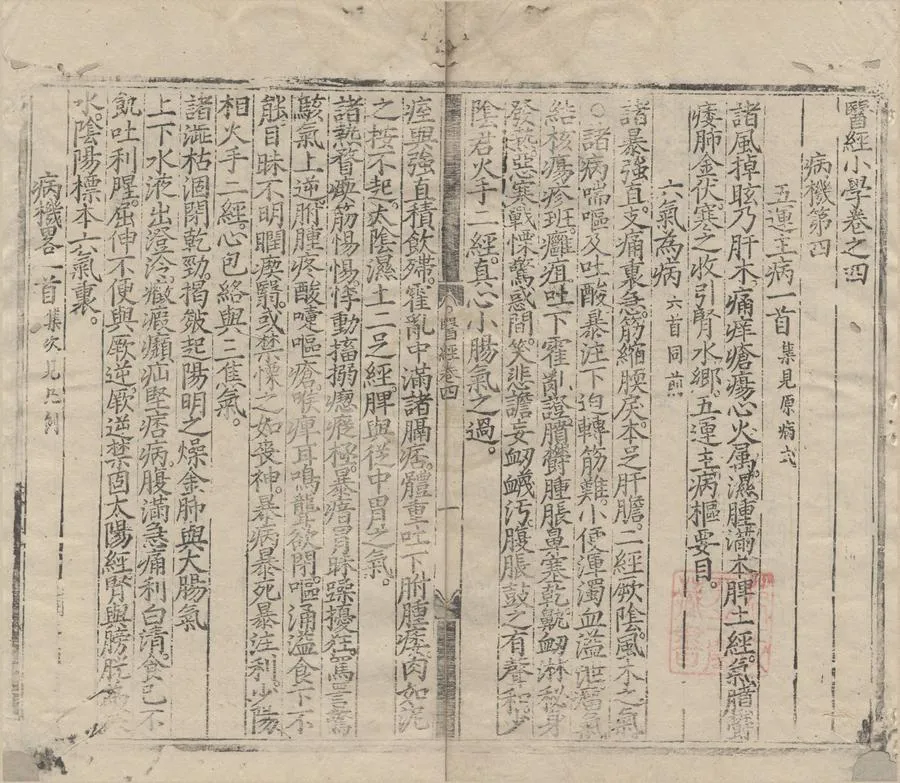 醫經小學卷之四
病機第四
五運主病一首 集見原病式
諸風掉眩乃肝木。痛痒瘡瘍心火属。濕腫滿本脾土經。氣膹鬱
痿肺金伏。寒之收引腎水鄉。五運主病樞要目。
六氣為病 六首同前
諸暴強直支痛裏急。筋縮腝戾本足肝膽。二經厥陰。風木之氣
。諸病喘嘔及吐酸暴注下迫轉筋難。小便渾濁血溢泄瘤氣
結核瘍疹班。癰疽吐下霍亂證膹鬱腫脹鼻塞乾鼽衂淋秘身
發熱惡寒戰慄驚惑間。笑悲譫妄衂衊汚腹脹鼓之有聲和。少
陰君火手二經。真心小腸氣之過。
醫經卷四
一
痓與強直積飲殢。霍亂中滿諸膈痞。體重吐下胕腫痿。肉如泥
之按不起。太陰濕土二足經。脾與從中胃之氣。
諸熱瞀瘛筋惕惕悸動搐搦瘛瘲極。暴瘖冒昧躁擾狂。罵詈驚
駭氣上逆。胕腫疼酸嚏嘔瘡喉痺耳鳴聾欲閉。嘔涌溢食下不
能目昧不明瞤瘈翳。或禁慄之如喪神。暴病暴死暴注利。少陽
相火手二經。心包絡與三焦氣。
諸澁枯涸閉乾勁。揭皴起陽明之燥金肺與大腸氣
上下水液出澄冷。癥瘕㿗疝堅痞病。腹滿急痛利白清。食已不
飢吐利腥。屈伸不便與厥逆。厥逆禁固太陽經腎與膀胱為寒
水。陰陽標本六氣裏。
病機畧一首